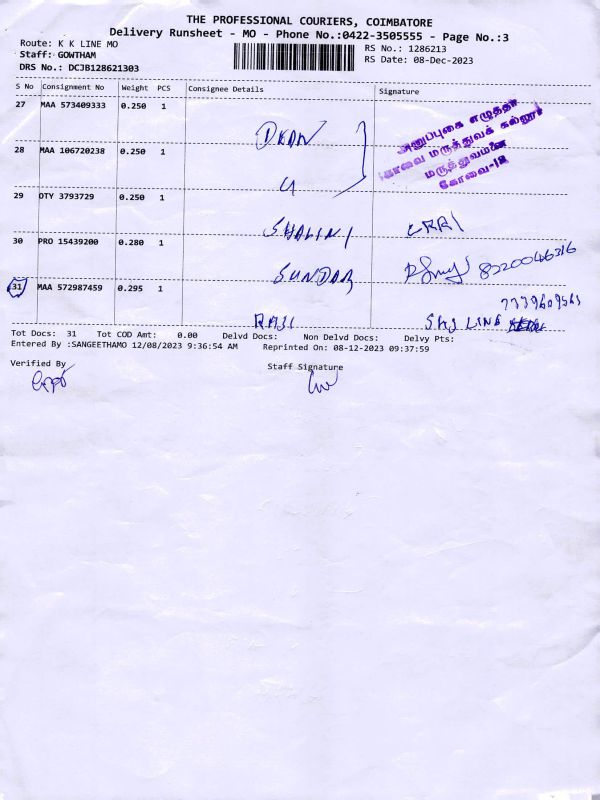 THE PROFESSIONAL COURIERS, COIMBATORE
Delivery Runsheet - MO - Phone No.:0422-3505555 - Page No.:3
Route: K K LINE MO
RS No.: 1286213
Staff: GOWTHAM
RS Date: 08-Dec-2023
DRS No.: DCJB128621303
S No Consignment No Weight PCS Consignee Details Signature
27 MAA 573409333 0.250 1
DEAN
அனுப்புகை எழுத்தர்
கோவை மருத்துவக் கல்லூரி
மருத்துவமனை
கோவை-18
28 MAA 106720238 0.250 1
29 DTY 3793729 0.250 1
SHALINI CRRI
30 PRO 15439200 0.280 1
SUNDAR 8220046316
31 MAA 572987459 0.295 1
RAJI
Tot Docs: 31 Tot COD Amt: 0.00 Delvd Docs: Non Delvd Docs: Delvy Pts:
Entered By :SANGEETHAMO 12/08/2023 9:36:54 AM Reprinted On: 08-12-2023 09:37:59
Verified By
Staff Signature